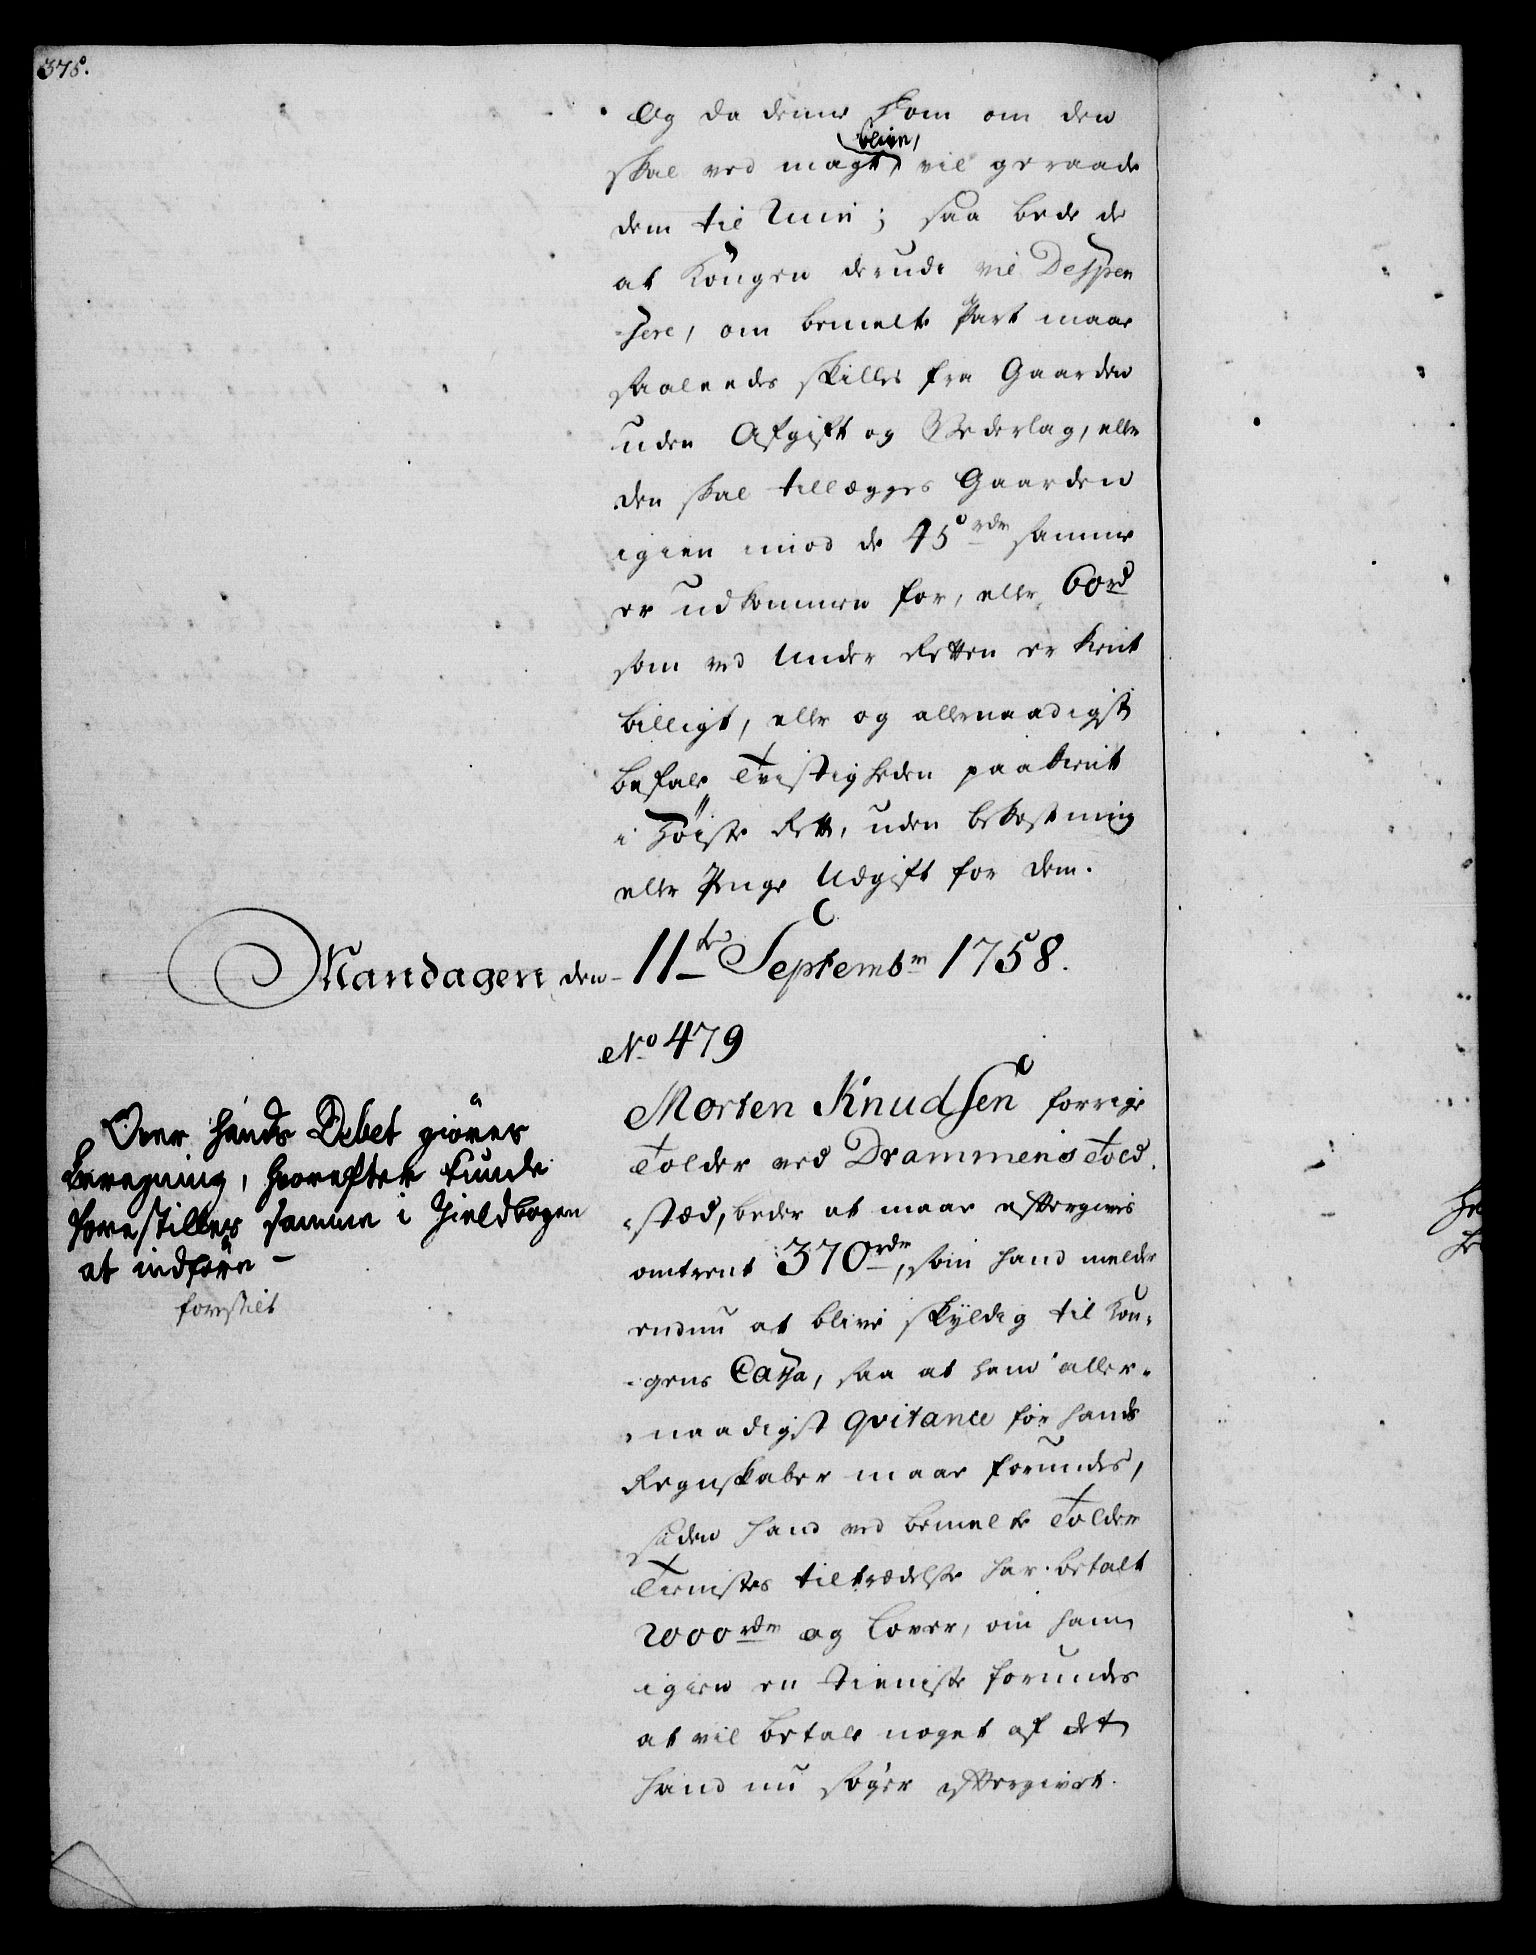 375.
Og da denne Dom om den
skal ved magt blive, vil geraade
dem til Ruin; saa bede de
at Kongen derudi vil Despen
-sere, om bemelte Part maae
saaleedes skilles fra Gaarden
uden Afgift og Vederlag, eller
den skal tillægges Gaarden
igien imod de 45 rdr samme
er udkommen for, eller 60 rd
som ved Under Retten er kient
billigt, eller og allernaadigst
befale Tvistigheden paakient
i Høiste Rett, uden bekostning
eller Penge Udgift for dem.
Mandagen den 11te Septembr 1758.
No 479
Morten Knudsen forrige
Tolder ved Drammens Told-
-stæd, beder at maae eftergives
omtrent 370 rdr, som hand melder
endnu at blive skyldig til Kon-
-gens Cassa, saa at ham aller-
-naadigst qvitance for hands
Regnskaber maae forundes,
siden hand ved bemelte Tolder
Tienistes tiltrædelse har betalt
2000 rdr og lover, om ham
igien en tieniste forundes
at vil betale noget af det
hand nu søger eftergivet.
Over hands Debet giøres
beregning, hvorefter kunde
forestilles samme i Gieldbogen
at indføre -
forestilt